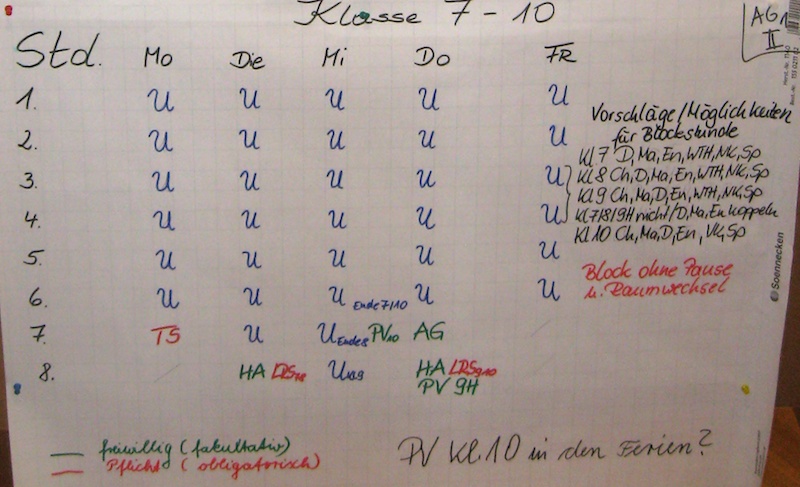 Klasse 7-10
AG 1
II
Std. Mo Die Mi Do FR
1. U U U U U
2. U U U U U
3. U U U U U
4. U U U U U
5. U U U U U
6. U U U Ende 7/10 U U
7. TS U U Ende 8 PV10 AG
8. HA LRS U HA LRS 9/10
PV 9H
Vorschläge/Möglichkeiten
für Blockstunde
Kl 7 D, Ma, En, WTH, NK, Sp
Kl 8 Ch, D, Ma, En, WTH, NK, Sp
Kl 9 Ch, Ma, D, En, WTH, NK, Sp
Kl 7/8/9H nicht D, Ma, En koppeln
Kl 10 Ch, Ma, D, En, VK, Sp
Block ohne Pause
u. Raumwechsel
Soennecken
freiwillig (fakultativ)
Pflicht (obligatorisch)
PV Kl. 10 in den Ferien?